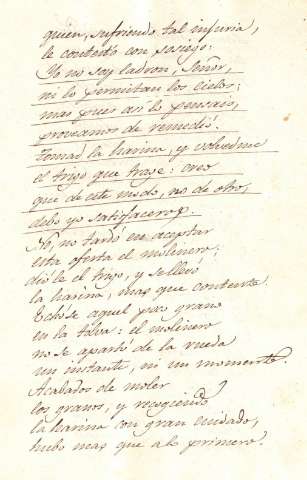 quien, sufriendo tal injuria,
le contestó con sosiego:
Yo no soy ladron, Señor,
ni lo permitan los cielos;
mas pues asi lo pensais,
proveamos de remedió.
Tomad la harina, y volvedme
el trigo que traxe: creo
que de este modo, no de otro,
debo yo satisfaceros.
No, no tardó en aceptar
esta oferta el molinero;
dióle el trigo, y se llevó
la harina, mas que contento.
Echóse aquel poco grano
en la tolva: el molinero
no se apartó de la rueda
un instante, ni un momento.
Acabados de moler
los granos, y recogiendo
la harina con gran cuidado,
hubo mas que alo primero.